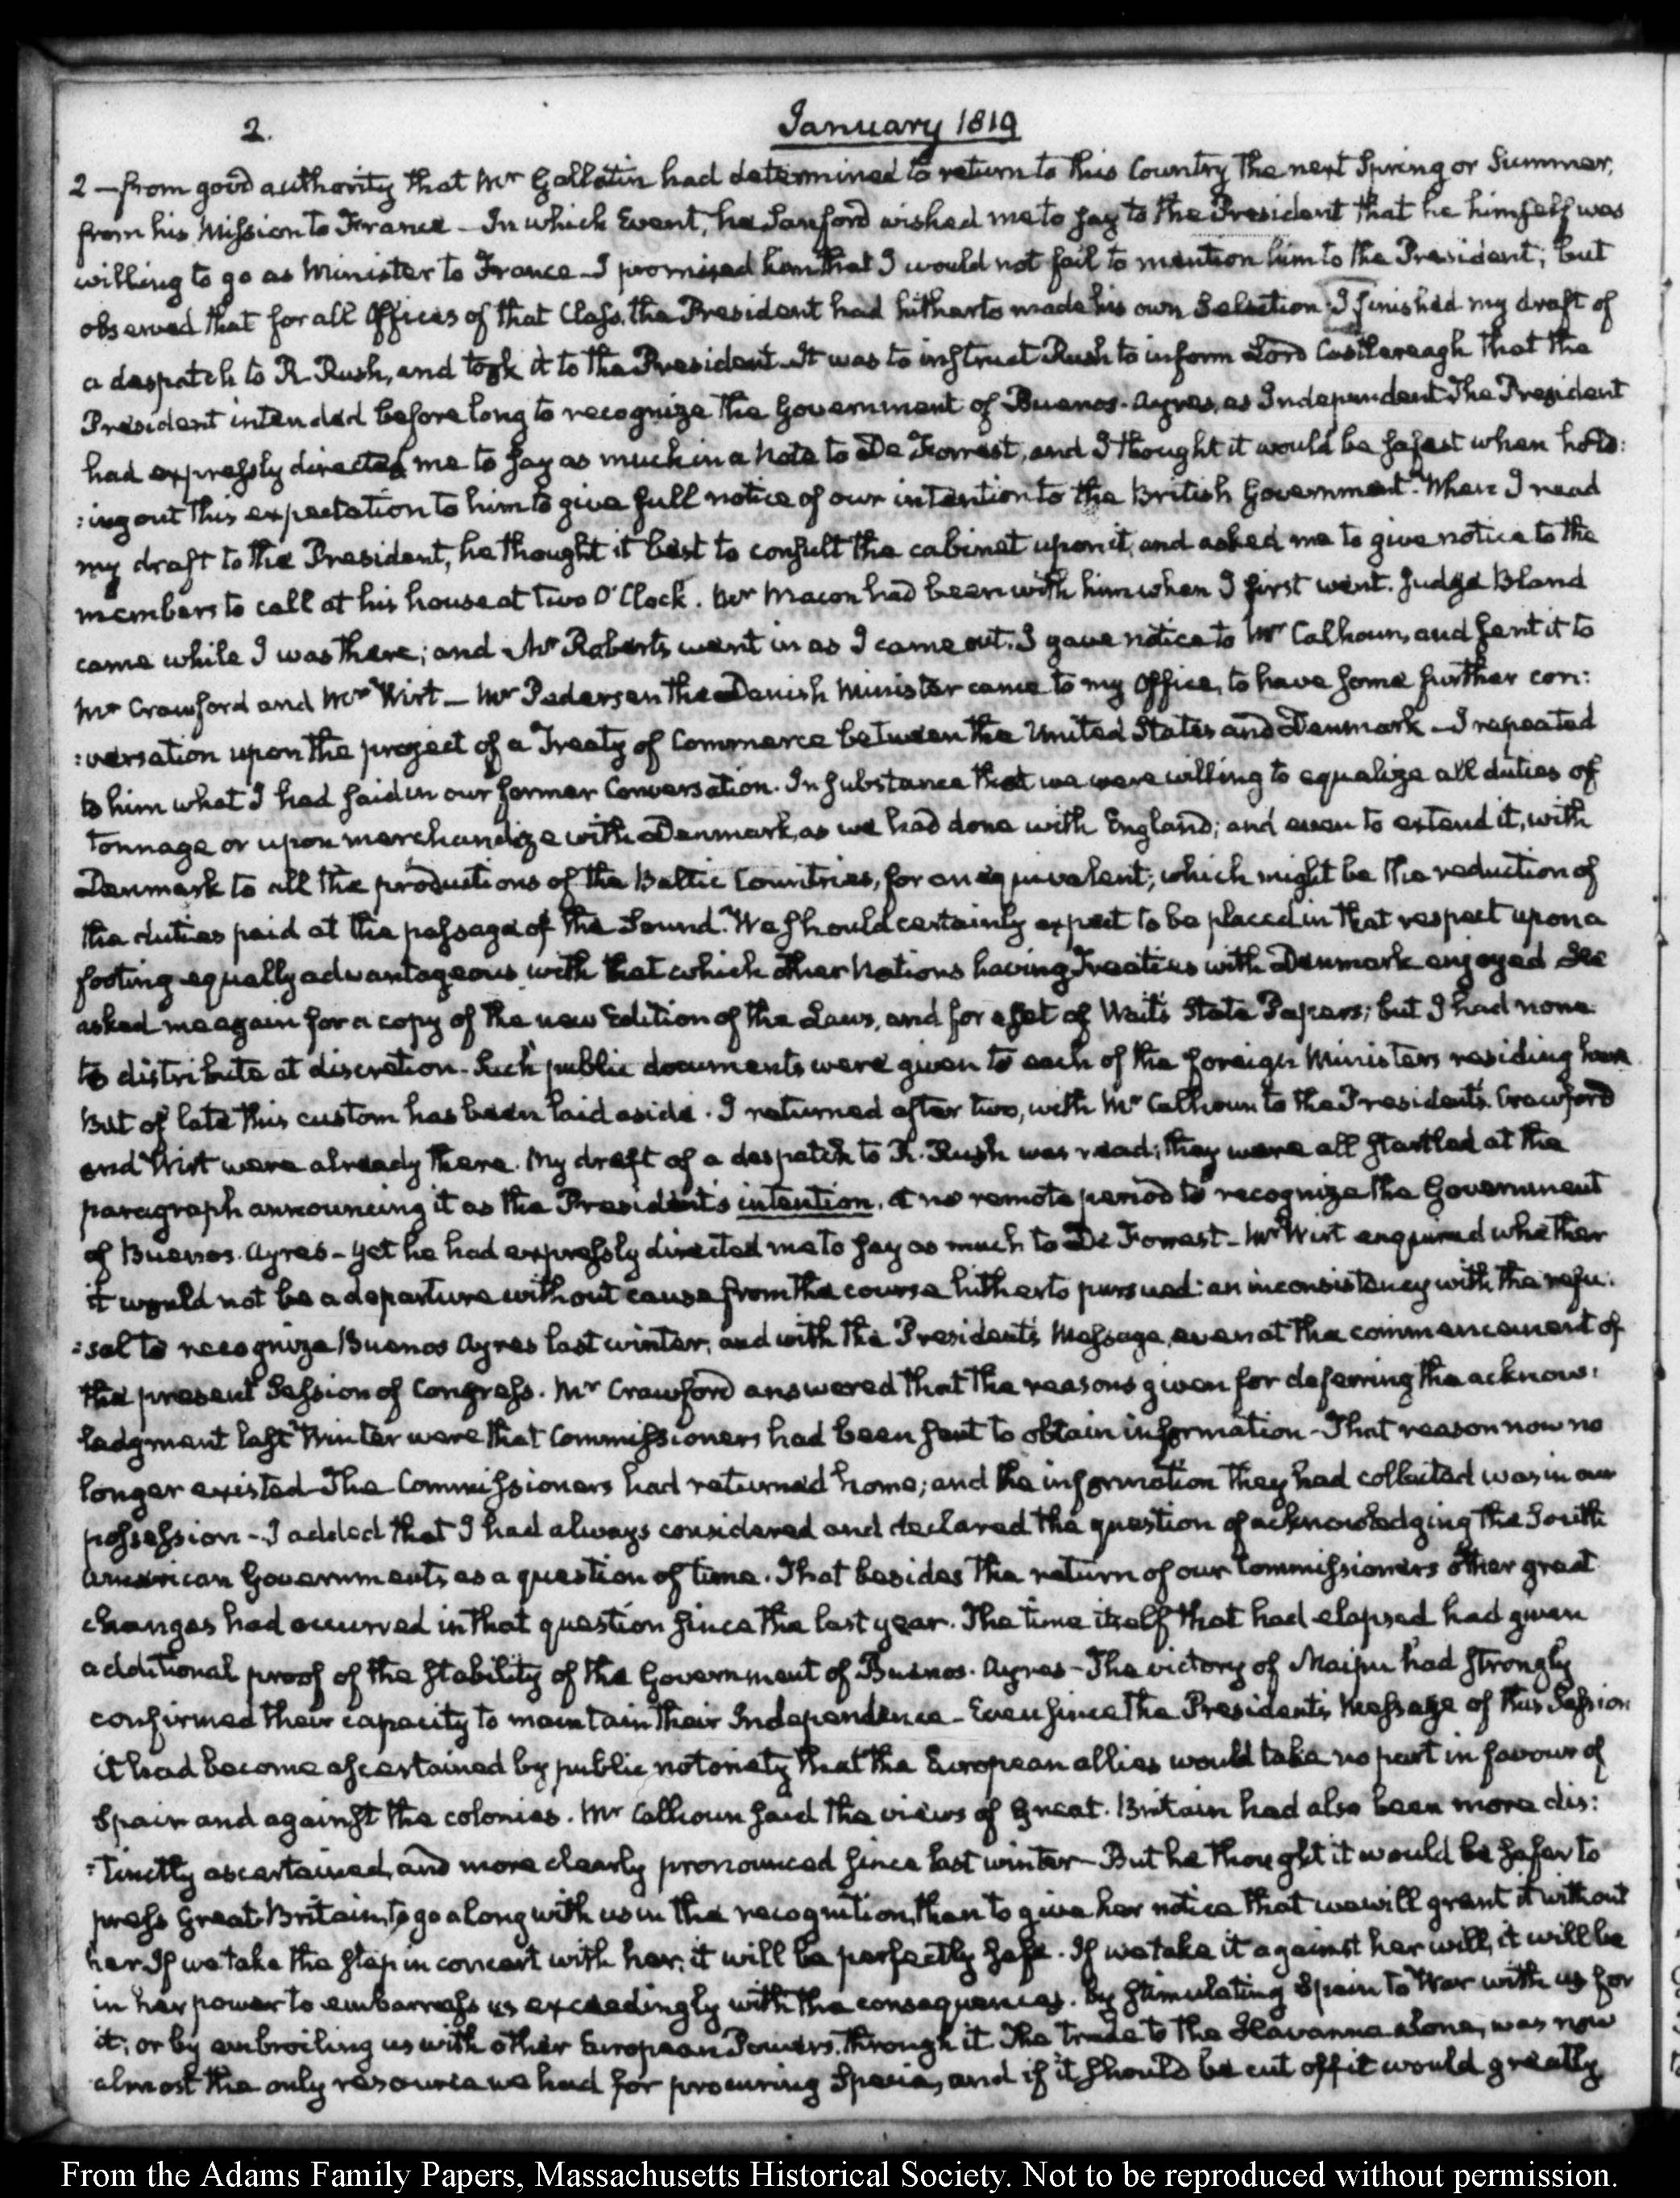 2.
January 1819
2 — from good authority that Mr Gallatin had determined to return to this Country the next Spring or Summer,
from his Mission to France — In which Event, he Sanford wished me to say to the President that he himself was
willing to go as Minister to France — I promised him that I would not fail to mention him to the President; but
observed that for all Offices of that Class, the President had hitherto made his own Selection. I finished my draft of
a despatch to R. Rush, and took it to the President. It was to instruct Rush to inform Lord Castlereagh that the
President intended before long to recognize the Government of Buenos-Ayres, as Independent. The President
had expressly directed me to say as much in a Note to De Forrest, and I thought it would be safest when hold:
:ing out this expectation to him to give full notice of our intention to the British Government. When I read
my draft to the President, he thought it best to consult the cabinet upon it, and asked me to give notice to the
members to call at his house at two O'Clock. Mr Macon had been with him when I first went. Judge Bland
came while I was there; and Mr Roberts went in as I came out. I gave notice to Mr Calhoun, and sent it to
Mr Crawford and Mr Wirt — Mr Pedersen the Danish Minister came to my Office, to have some further con:
:versation upon the project of a Treaty of Commerce between the United States and Denmark — I repeated
to him what I had said in our former Conversation. In substance that we were willing to equalize all duties of
tonnage or upon merchandize with Denmark, as we had done with England; and even to extend it, with
Denmark to all the productions of the Baltic Countries, for an equivalent; which might be the reduction of
the duties paid at the passage of the Sound. We should certainly expect to be placed in that respect upon a
footing equally advantageous with that which other Nations having Treaties with Denmark enjoyed He
asked me again for a copy of the new Edition of the Laws, and for a set of Wait's State Papers; but I had none
to distribute at discretion. Such public documents were given to each of the foreign Ministers residing here
But of late this custom has been laid aside. I returned after two, with Mr Calhoun to the President's. Crawford
and Wirt were already there. My draft of a despatch to R. Rush was read; they were all startled at the
paragraph announcing it as the President's intention, at no remote period to recognize the Government
of Buenos-Ayres — yet he had expressly directed me to say as much to De Forrest — Mr Wirt enquired whether
it would not be a departure without cause from the course hitherto pursued: an inconsistency with the refu:
:sal to recognize Buenos Ayres last winter, and with the President's Message, even at the commencement of
the present Session of Congress. Mr Crawford answered that the reasons given for deferring the acknow:
ledgment last Winter were that Commissioners had been sent to obtain information — That reason now no
longer existed — The Commissioners had returned home; and the information they had collected was in our
possession — I added that I had always considered and declared the question of acknowledging the South
American Governments as a question of time. That besides the return of our Commissioners other great
changes had occurred in that question since the last year. The time itself that had elapsed had given
additional proof of the stability of the Government of Buenos-Ayres — The victory of Maipu had strongly
confirmed their capacity to maintain their Independence — Even since the President's Message of this Session
it had become ascertained by public notoriety that the European allies would take no part in favour of
Spain and against the colonies. Mr Calhoun said the views of Great-Britain had also been more dis:
:tinctly ascertained, and more clearly pronounced since last winter — But he thought it would be safer to
press Great-Britain, to go along with us in the recognition, than to give her notice that we will grant it without
her. If we take the step in concert with her, it will be perfectly safe. If we take it against her will, it will be
in her power to embarrass us exceedingly with the consequences. By stimulating Spain to War with us for
it; or by embroiling us with other European Powers, through it. The trade to the Havanna alone, was now
almost the only resource we had for procuring Specie, and if it should be cut off it would greatly
From the Adams Family Papers, Massachusetts Historical Society. Not to be reproduced without permission.